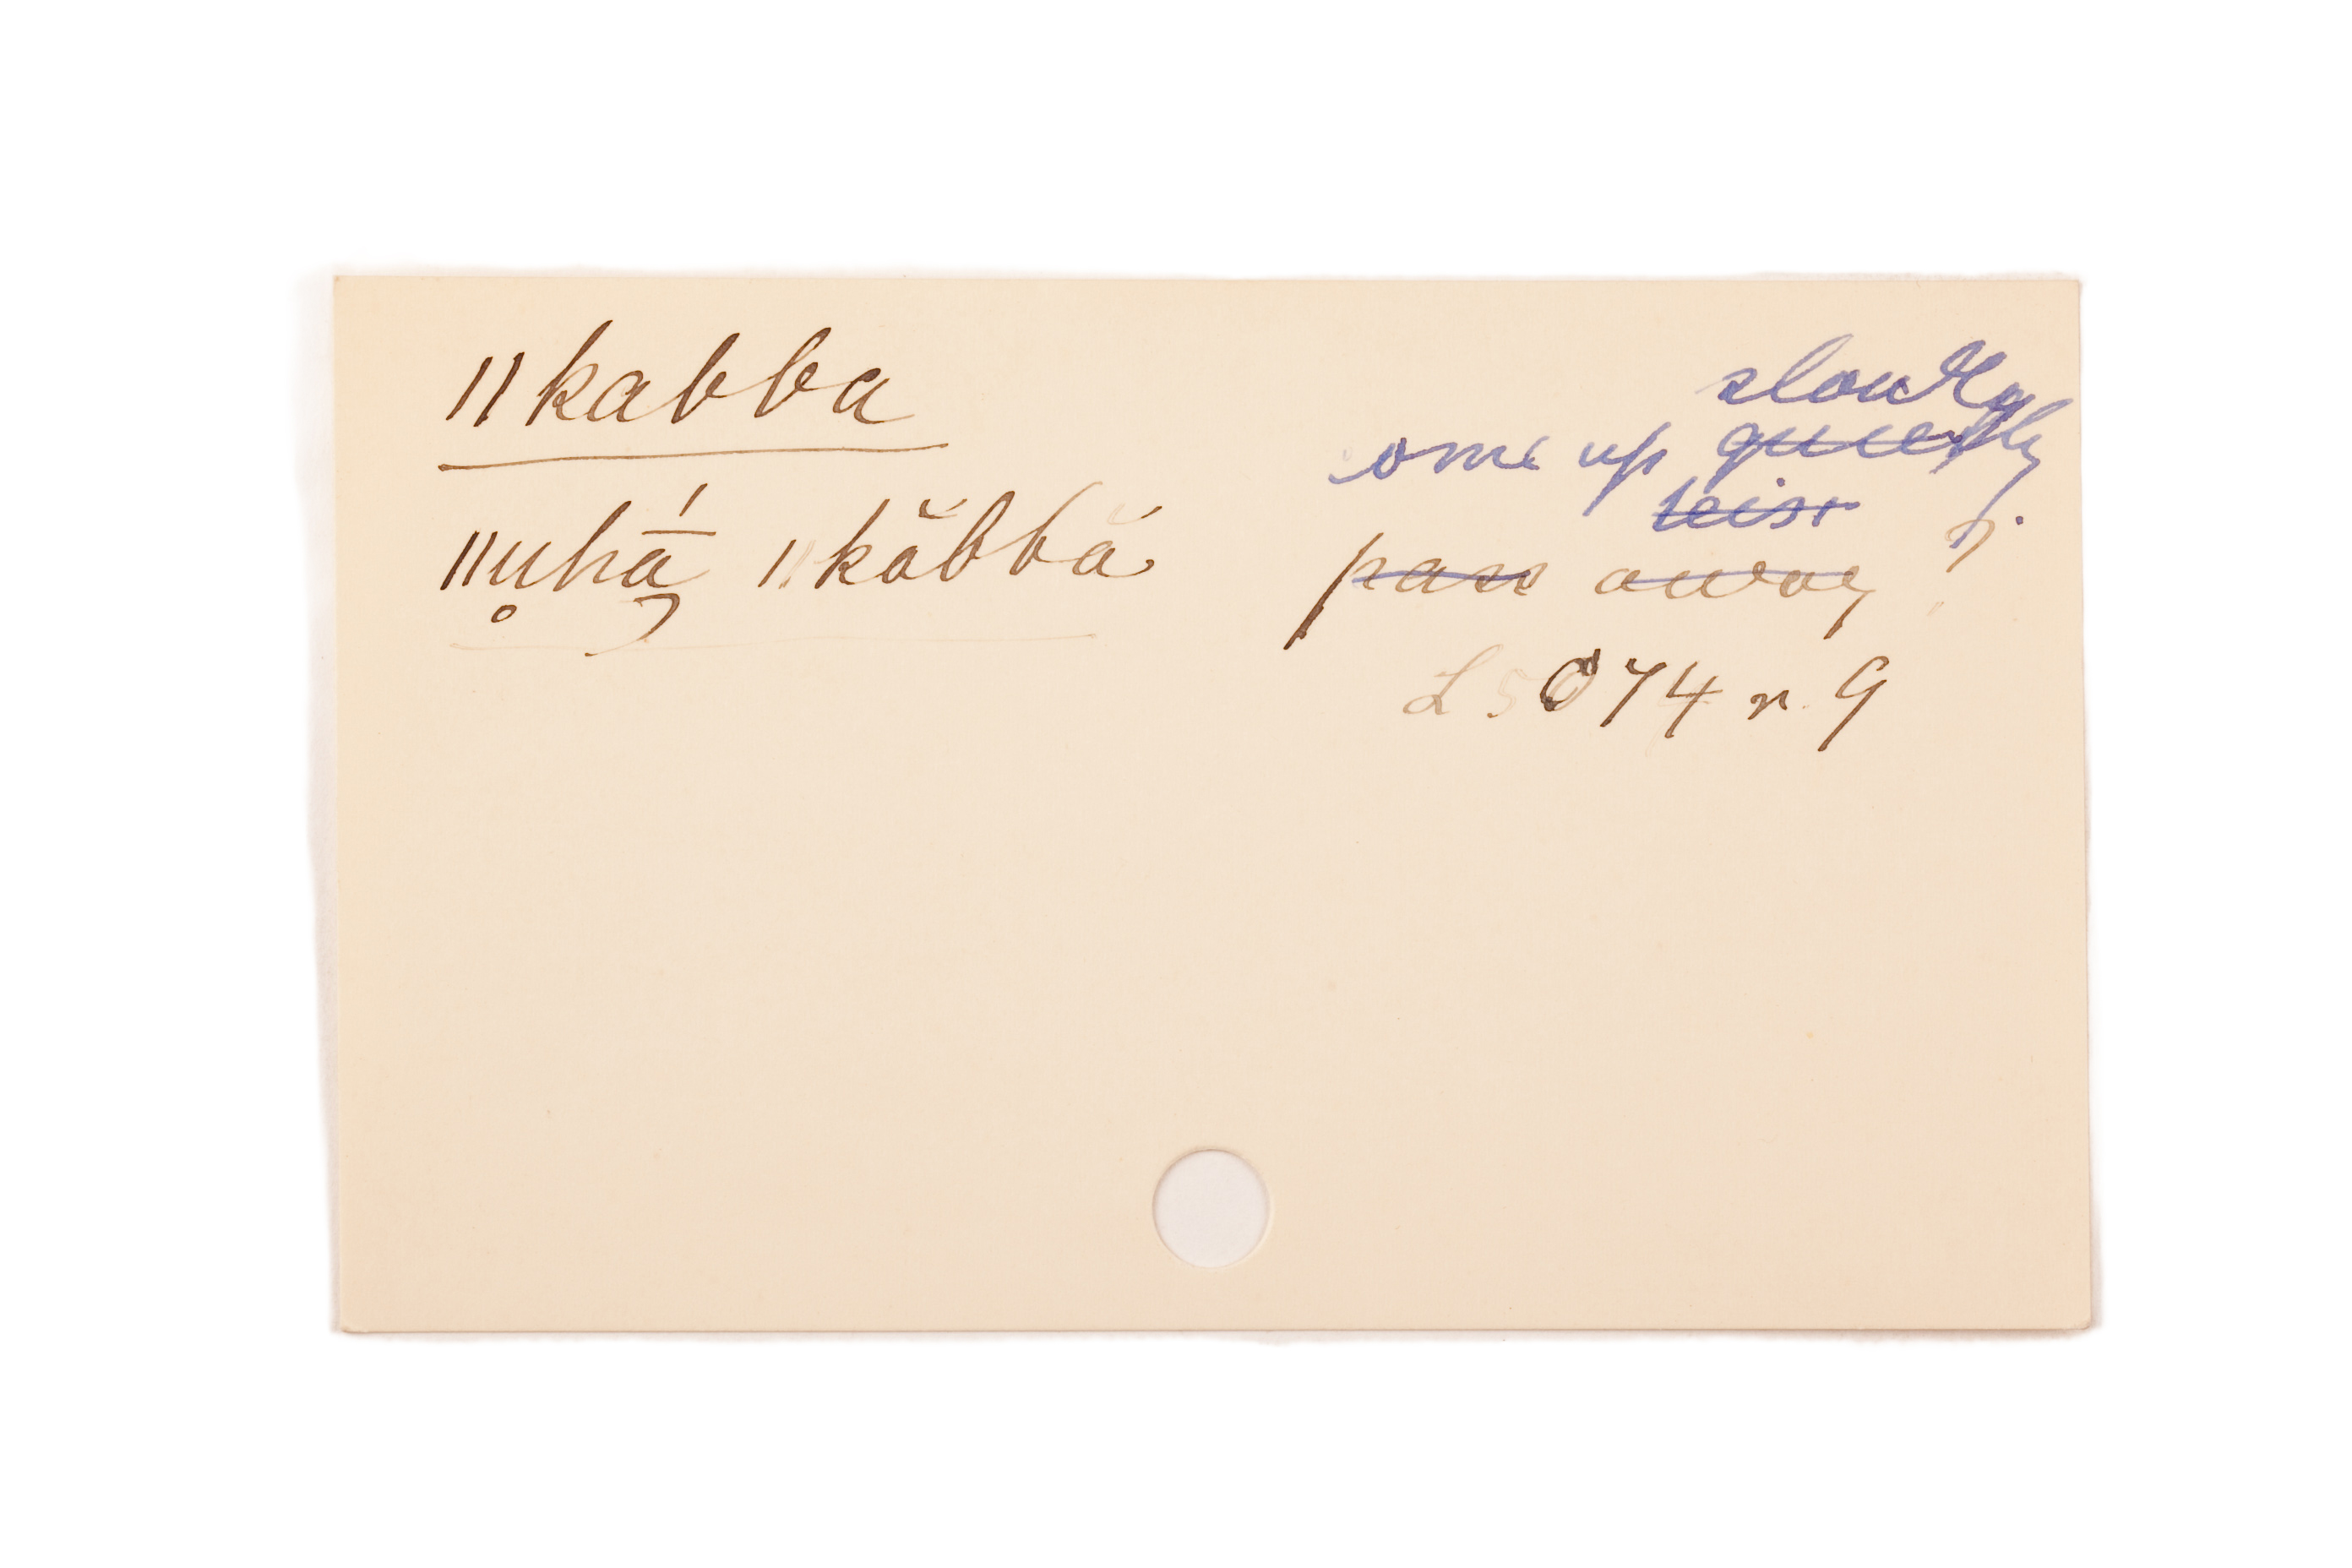 ǁkabba
ǁu̥hā́ ̡ ǁkăbbă
slowly
come up quietly
pass away ?
L 5074 r. 9